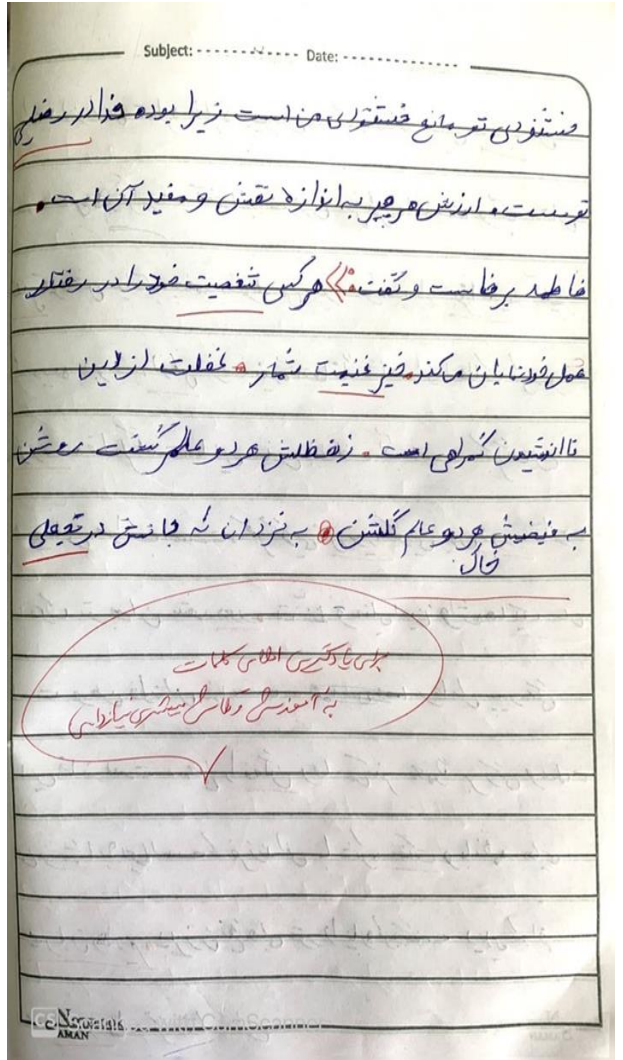 Subject: Date:
خشنودی تو مانع خشنودی من است زیرا بوده خدا در رضایی
توست. ارزش هر چیر به اندازه نقش و مفید آن است.
فاطمه برخاست و گفت: «هر کس شخصیت خود را در رفتار
عمل خود نمایان می‌کند. خیز غنیت شمار. غفلت از این
نا اندیشیدن گمراهی است. زفظلش هر دو عالم گشت روشن
به فیضش هر دو عالم گلشن. به نزد آن که جانش در تجعلی
خاک
برای یادگیری املای کلمات
به آموزش و تلاش بیشتری نیاز دارید
AMAN
CS Scanned with CamScanner